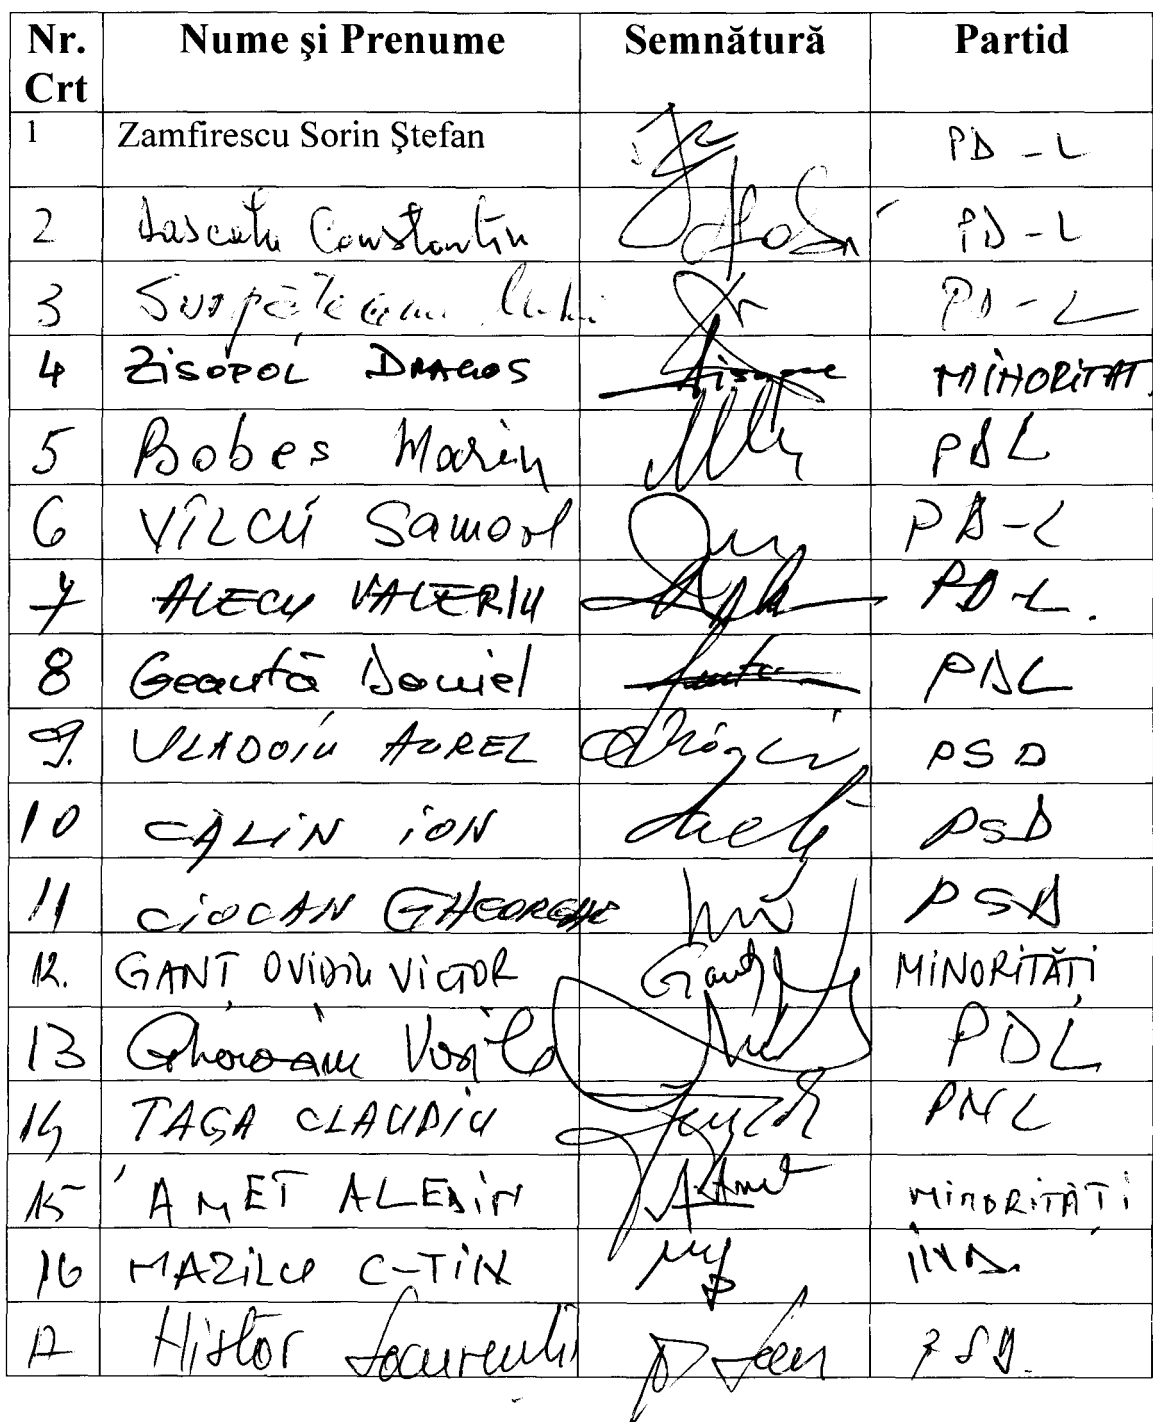 Nr. Crt Nume şi Prenume Semnătură Partid
1 Zamfirescu Sorin Ştefan PD - L
2 Dascalu Constantin PD - L
3 PD - L
4 ZISOPOL DRAGOS MINORITAT.
5 Bobeș Marin PDL
6 VÎLCU Samoil PD-L
7 ALECU VALERIU PD-L.
8 Geantă Daniel PDL
9. VLADOIU AUREL PSD
10 CĂLIN ION PSD
11 CIOCAN GHEORGHE PSD
12. GANȚ OVIDIU VICTOR Ganț MINORITĂȚI
13 Gherasim Vasile PDL
14 TAGA CLAUDIU PNL
15 AMET ALEDIN Amet MINORITĂȚI
16 MAZILU C-TIN IND.
17 Nistor Laurențiu PSD.